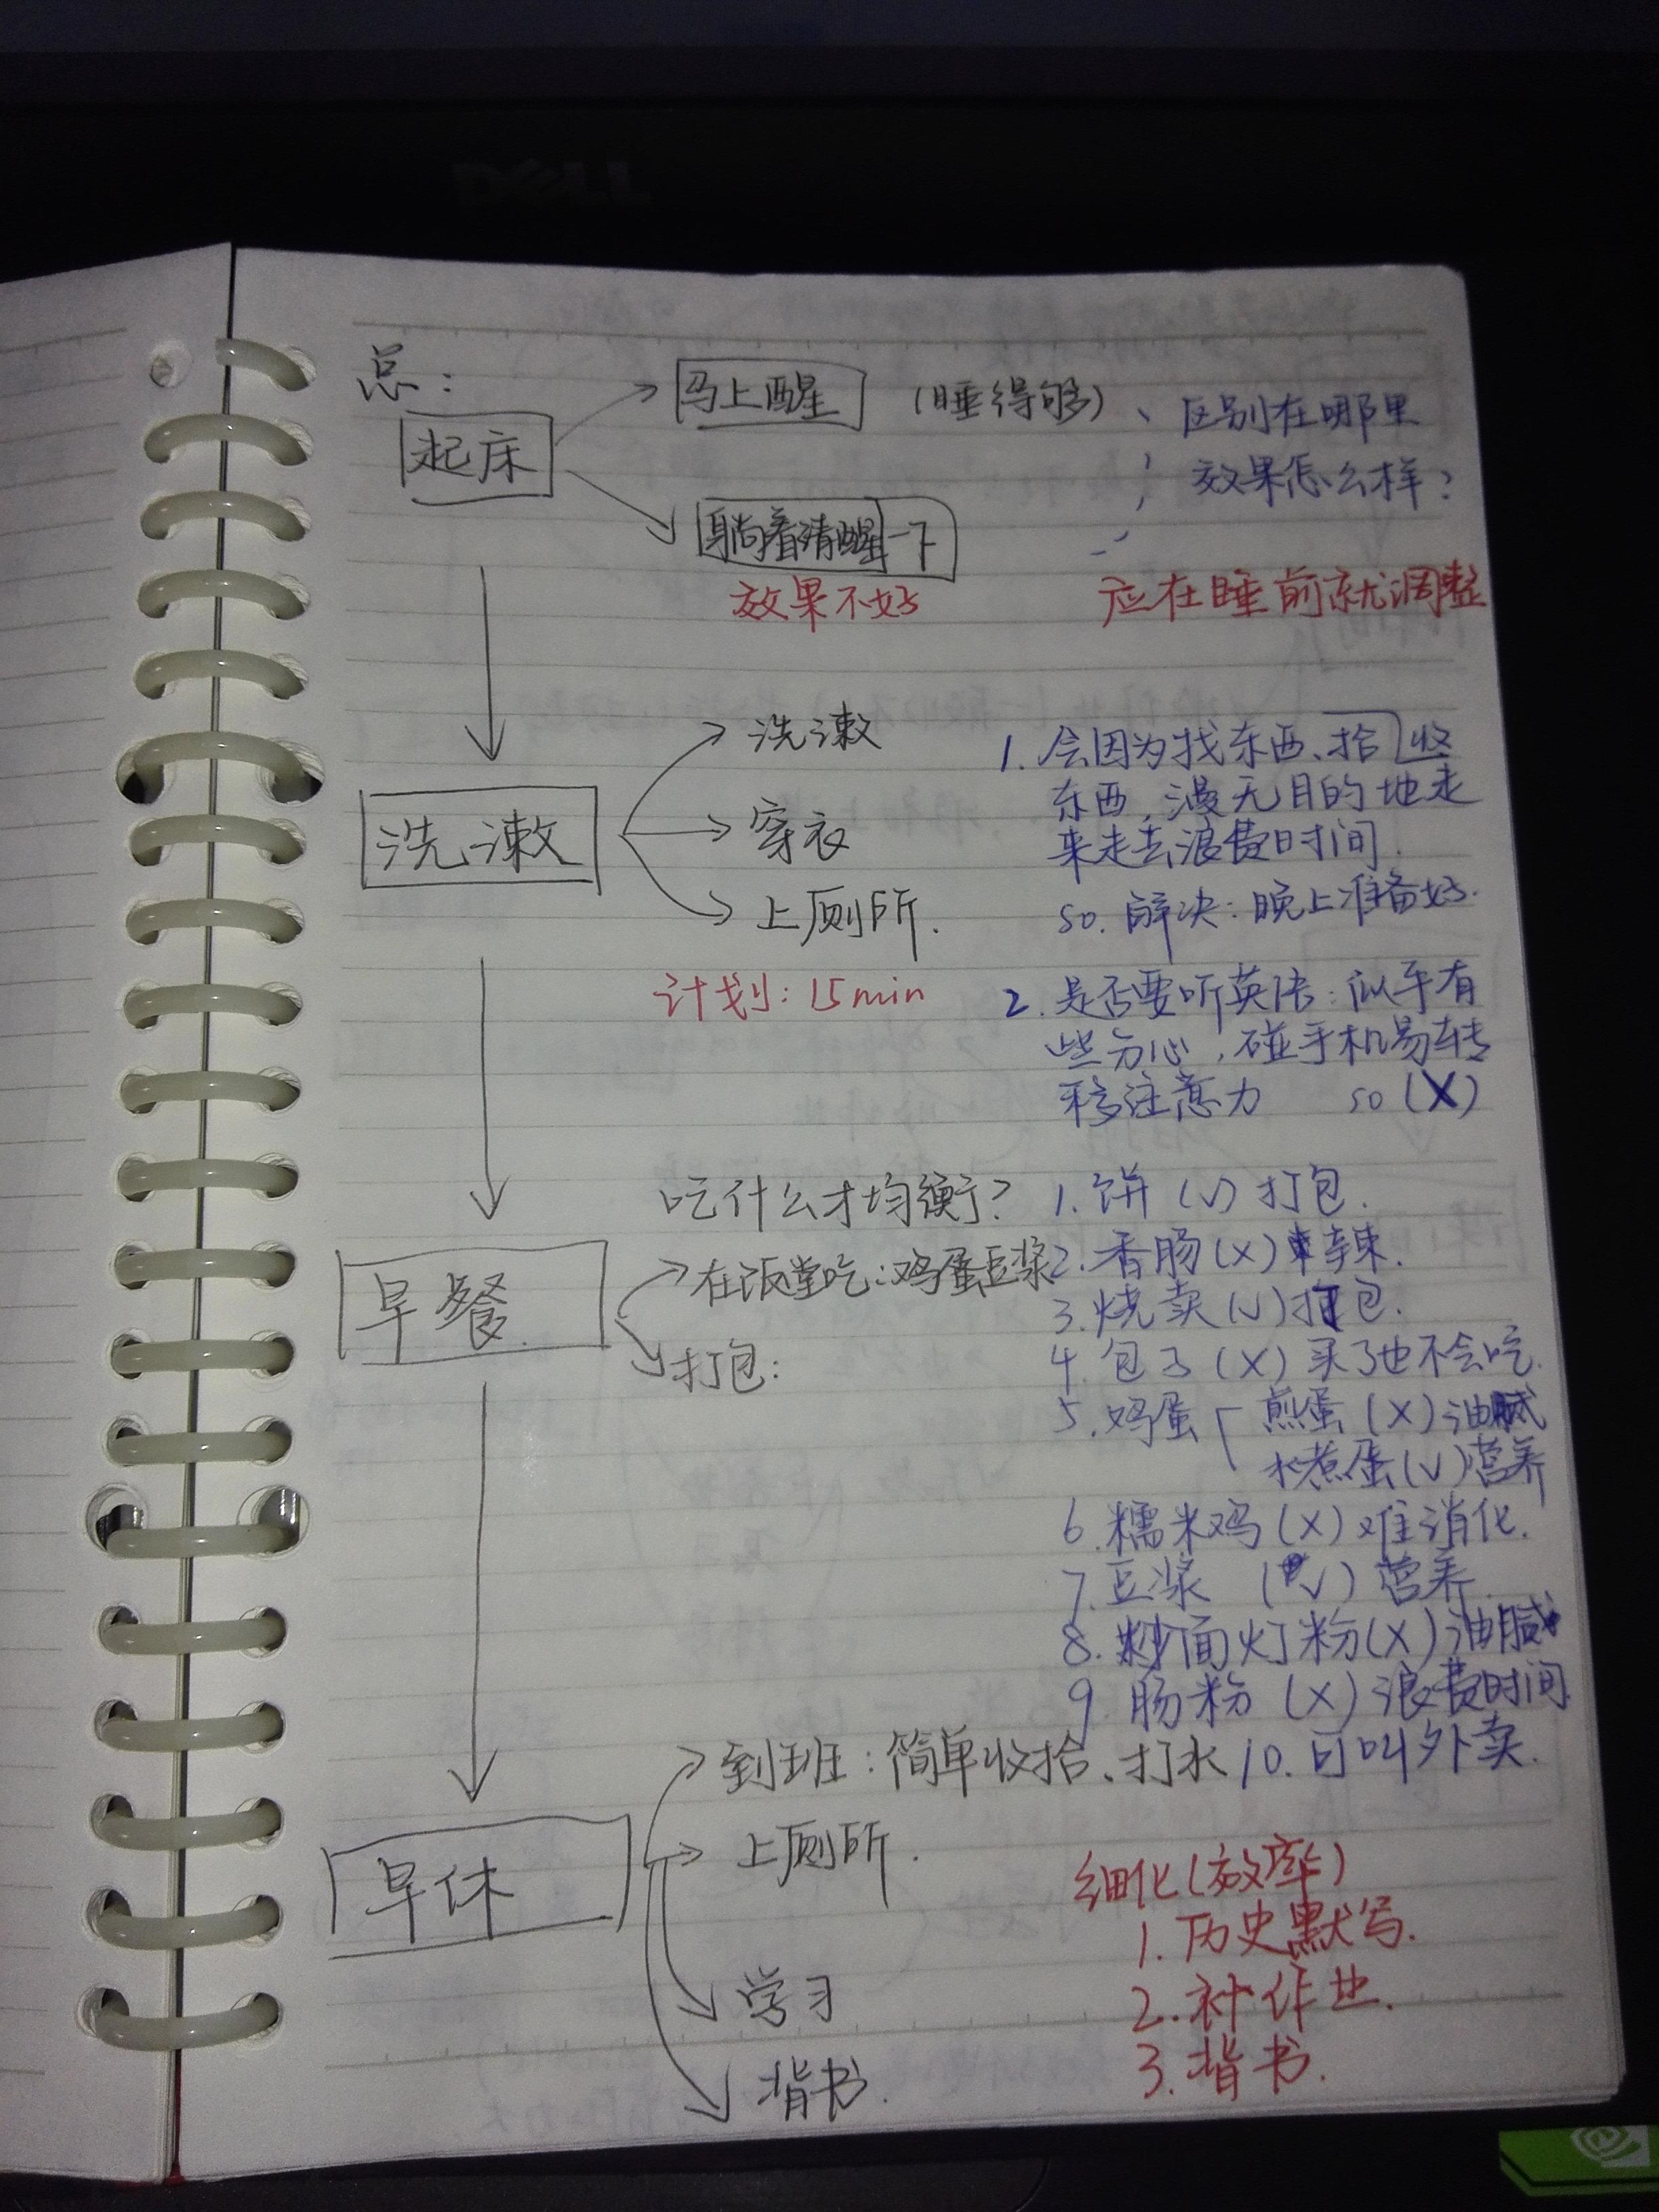 DELL
总：
马上醒 （睡得够） 、 区别在哪里
起床 效果怎么样？
躺着清醒一下
效果不好 应在睡前就调整
洗漱
洗漱
穿衣
上厕所.
计划：15min
1. 会因为找东西、拾收
东西，漫无目的地走
来走去浪费时间.
so. 解决：晚上准备好.
2. 是否要听英语：似乎有
些分心，碰手机易转
移注意力 so (X)
吃什么才均衡？
早餐
在饭堂吃：鸡蛋豆浆
打包：
1. 饼 (√) 打包.
2. 香肠 (X) 辣.
3. 烧卖 (√) 打包.
4. 包子 (X) 买了也不会吃.
5. 鸡蛋 煎蛋 (X) 油腻
水煮蛋 (√) 营养
6. 糯米鸡 (X) 难消化.
7. 豆浆 (√) 营养.
8. 炒面灯粉 (X) 油腻
9. 肠粉 (X) 浪费时间
10. 可叫外卖.
早休
到班：简单收拾、打水
上厕所.
学习
背书.
细化（效率）
1. 历史默写.
2. 补作业.
3. 背书.